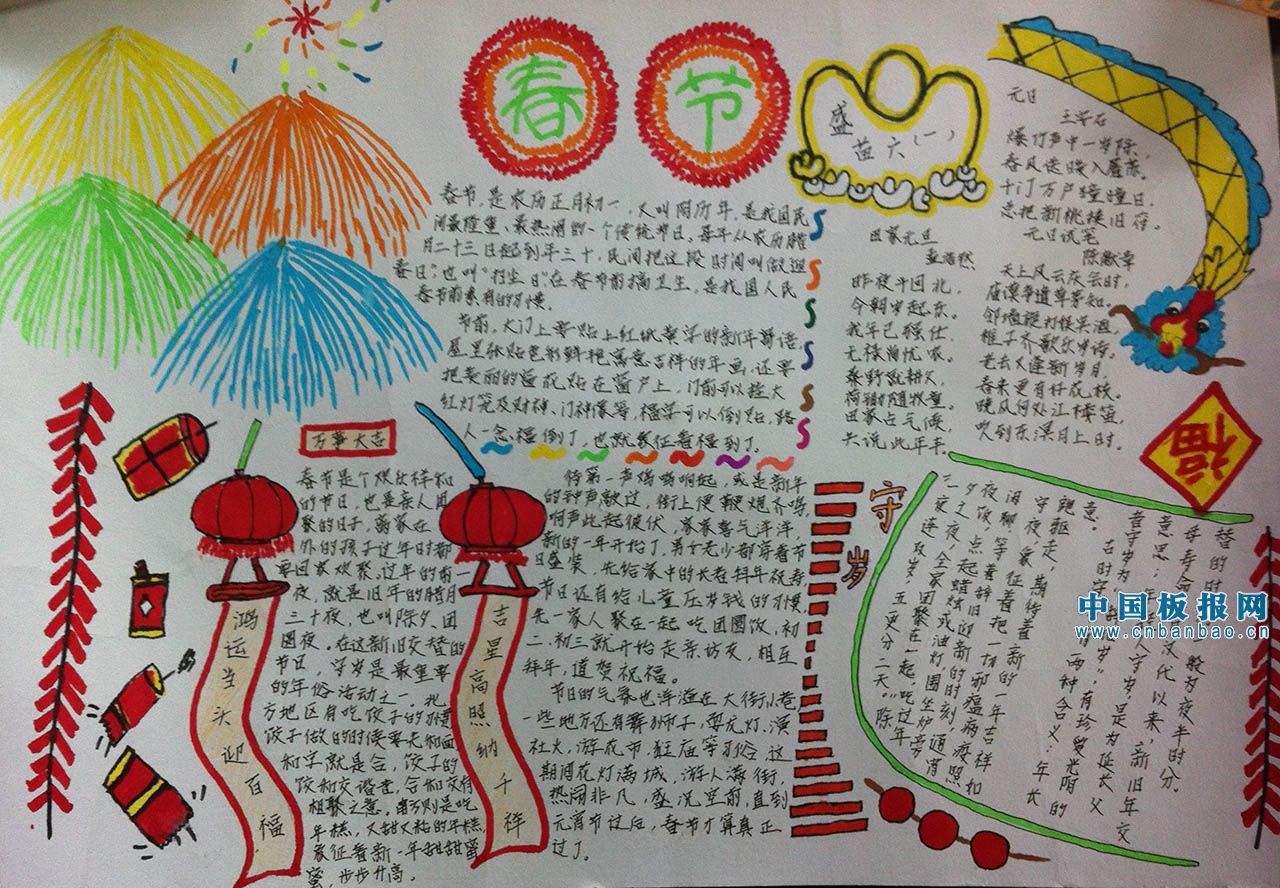 春 节
盛苗六(一)
春节,是农历正月初一,又叫阴历年,是我国民
间最隆重、最热闹的一个传统节日。每年从农历腊
月二十三日起到年三十,民间把这段时间叫做"迎
春日",也叫"扫尘日",在春节前搞卫生,是我国人民
春节前素有的习惯。
节前,大门上要贴上红纸黄字的新年寄语,
屋里张贴色彩鲜艳寓意吉祥的年画,还要
把美丽的窗花贴在窗户上,门前可以挂大
红灯笼及财神、门神像等,福字可以倒贴,路
人一念福倒了,也就象征着福到了。
元日
王安石
爆竹声中一岁除,
春风送暖入屠苏。
千门万户曈曈日,
总把新桃换旧符。
田家元旦
孟浩然
昨夜斗回北,
今朝岁起东。
我年已强仕,
无禄尚忧农。
桑野就耕父,
荷锄随牧童。
田家占气候,
共说此年丰。
元日试笔
陈献章
天上风云庆会时,
庙谟争遣草茅知。
邻墙旋打娱宾酒,
稚子齐歌乐岁诗。
老去又逢新岁月,
春来更有好花枝。
晚风何处江楼笛,
吹到东溟月上时。
福
万事大吉
春节是个欢乐祥和
的节日,也是亲人团
聚的日子,离家在
外的孩子过年时都
要回家欢聚。过年的前
一夜,就是旧年的腊月
三十夜,也叫除夕,团
圆夜。在这新旧交替的
节日,守岁是最重要
的年俗活动之一。北
方地区有吃饺子的习惯
饺子做的时候要先和面
和字就是合,饺子的
饺和交谐音,合和交有
相聚之意。南方则是吃
年糕,又甜又粘的年糕,
象征着新一年甜甜蜜
蜜,步步升高。
鸿运当头迎百福
吉星高照纳千祥
待第一声鸡啼响起,或是新年
的钟声敲过,街上便鞭炮齐鸣,
响声此起彼伏,家家喜气洋洋,
新的一年开始了,男女老少都穿着节
日盛装,先给家中的长者拜年祝寿
节日还有给儿童压岁钱的习惯
先一家人聚在一起吃团圆饭,初
二、初三就开始走亲访友,相互
拜年,道贺祝福。
节日的气氛也洋溢在大街小巷
一些地方还有舞狮子,耍龙灯、演
社火,游花市,逛庙等习俗,这
期间花灯满城,游人满街,
热闹非凡,盛况空前,直到
元宵节过后,春节才算真正
过了。
守岁
替的时
母寿命
意思;年
着守岁为
意。古时守岁
跑驱走,期待着新的一年吉祥
守夜,象征着把一切邪瘟病疫照
闲聊,等着辞旧迎新的时刻,通宵
夜饭,点起蜡烛或油灯,围坐炉旁
夕之夜,全家团聚在一起,吃过年
一夜连双岁,五更分二天。"除
中国板报网
www.cnbanbao.cn